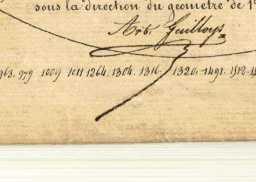 sous la direction du géometre de 1
Art. Guilloys
963. 979 1009 1011 1264. 1304. 1316. 1320. 1491. 1512